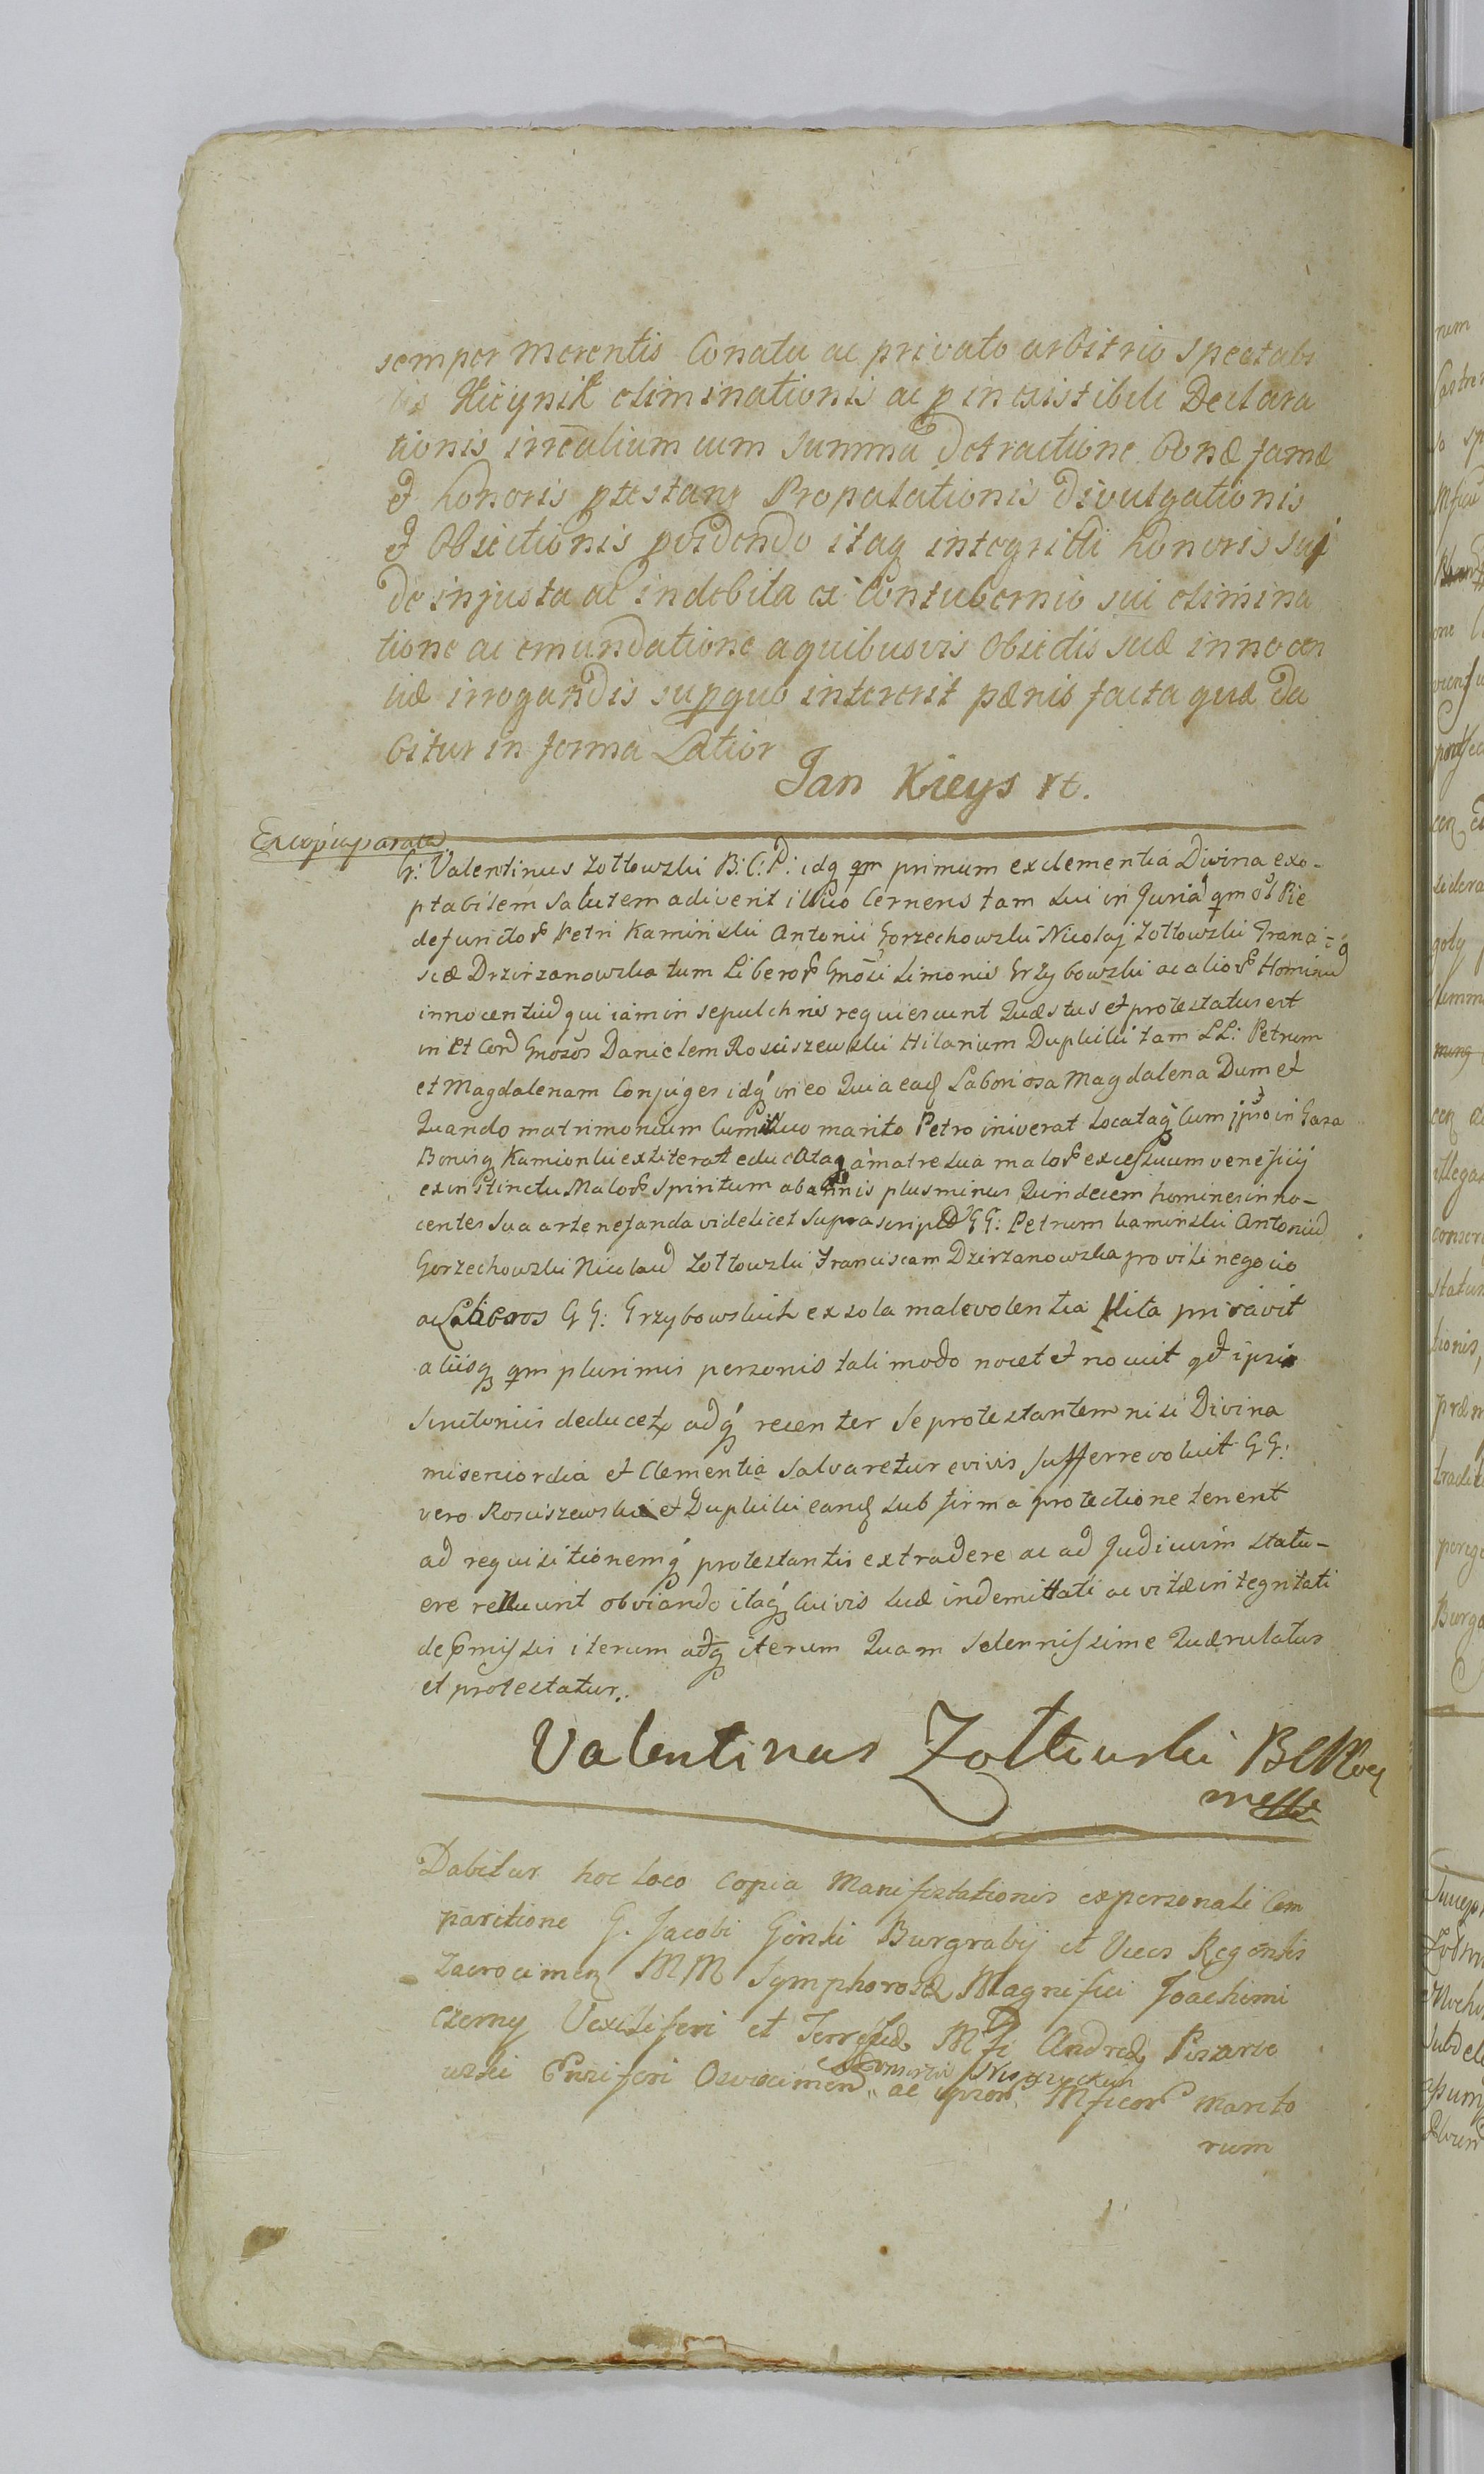 semper merentis Conatu ac privato arbitrio spectabi
lis Kieynik eliminationis ac p inexistibili Declara
tionis irrealium cum summa detractione bonæ famæ
et honoris ptestans Propalationis Divulgationis
et Obiectionis pvidendo itaq integritti honoris sui
de injusta ac indebita ex Contubernio sui elimina
tione ac emundatione a quibusvis Obiectis suæ innocen
tiæ irrogandis supquo intererit pænis facta quæ Da
bitur in forma Latior
Jan Kieys
Ex copia parata
G: Valentinus Zołtowski B: C: P: idq qm primum ex clementia Divina exo-
ptabilem salutem adiverit illico Cernens tam sui in Juria qm ol Pie
defunctor Petri Kaminski Antonii Gorzechowski Nicolaj Zołtowski Franci
scæ Drzirzanowska tum Liberor Gnosi Simonis Grzybowski ac alior Hominu
innocentiu qui iam in sepulchris requiescunt Quæstus et protestatus est
in et Cor Gnosos Danielem Rosciszewski Hilarium Duplicki tam LL: Petrum
et Magdalenam Conjuges idq in eo Quia eadq Laboriosa Magdalena Dum et
Quando matrimonium Cum suo marito Petro iniverat Locataq Cum ipso in
Bonisq Kamionki extiterat educataq a matre sua malor excessuum veneficij
ex instinctu Malor spirituum ab annis plus minus Quindecem homines inno-
centes sua arte nefanda videlicet supra scriptos GG: Petrum Kaminski Antoniu
Gorzechowski Nicolau Zołtowski Franciscam Dzirzanowska pro vili negocio
ac Liberos GG: Grzybowskich ex sola malevolentia Vita privavit
aliisq qm plurimis personis tali modo nocet et nocuit qd ipsis
scrutiniis deducetr adq recenter se protestantem nisi Divina
misericordia et Clementia salvaretur e vivis sufferre voluit GG:
vero Rosciszewski et Duplicki eandq sub firma protectione tenent
ad requisitionemq protestantis extradere ac ad Judicium statu-
ere renuunt obviando itaq cuivis suæ indemnitati ac vitæ integritati
de pmissis iterum adq iterum Quam solennissime Quærulatur
et protestatur.
Valentinus Zołtowski
Dabitur hoc loco Copia Manifestationis ex personali Com
paritione G. Jacobi Burgrabij et Vices Regentis
Zacrocimen MM Symphorosæ Magnifici Joachimi
Czerny Vexiliferi et MM Andreæ Pisarze
wski Ensiferi ac ipsor Mficor marito
rum